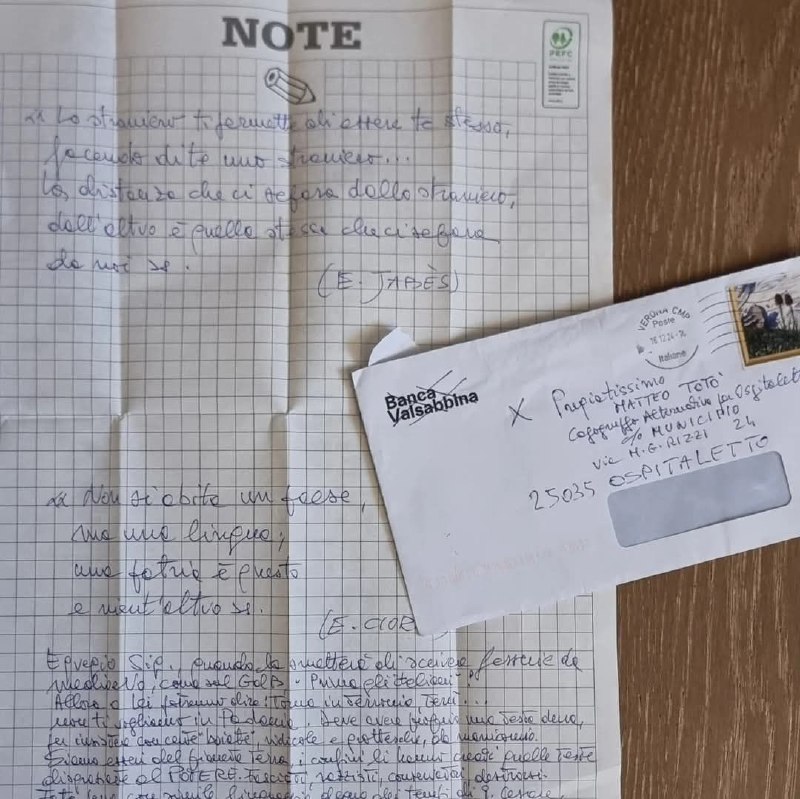 NOTE
PEFC
"Lo straniero ti permette di essere te stesso,
facendo di te uno straniero...
La distanza che ci separa dallo straniero,
dall'altro è quella stessa che ci separa
da noi".
(E. JABÈS)
"Non si abita un paese,
ma una lingua;
una patria è questo
e nient'altro".
(E. CIOR
Egregio Sig., quando la smetterà di scrivere
medioevo, come sul GdB "Prima gli italiani".
Allora a lei potranno dire: Torna in
non ti vogliamo in Padania. Deve avere proprio una testa dura,
ridicole e grottesche,
Siamo esseri del pianeta Terra, i confini li hanno creati quelle teste
disgraziate al POTERE. Fascisti, razzisti,
dei tempi di G. Cesare,
Banca
Valsabbina
VERONA CMP
Poste
Italiane
X Pregiatissimo
MATTEO TOTO'
Capogruppo Alternativa per Ospitaletto
c/o MUNICIPIO
via M.G. RIZZI 24
25035 OSPITALETTO